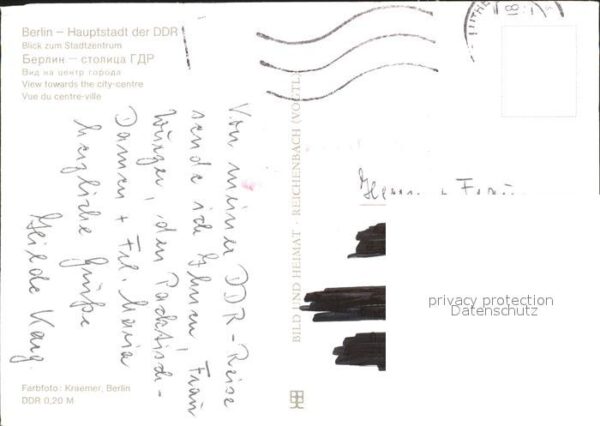 Berlin – Hauptstadt der DDR
Blick zum Stadtzentrum
Берлин — столица ГДР
Вид на центр города
View towards the city-centre
Vue du centre-ville
Von meiner DDR-Reise
sende ich Ihnen, Frau
Würger, den Packtisch-
Damen + Frl. Maria
herzliche Grüße
Hilde Karg.
BILD UND HEIMAT · REICHENBACH (VOGTL)
Herrn + Frau
privacy protection
Datenschutz
Farbfoto: Kraemer, Berlin
DDR 0,20 M